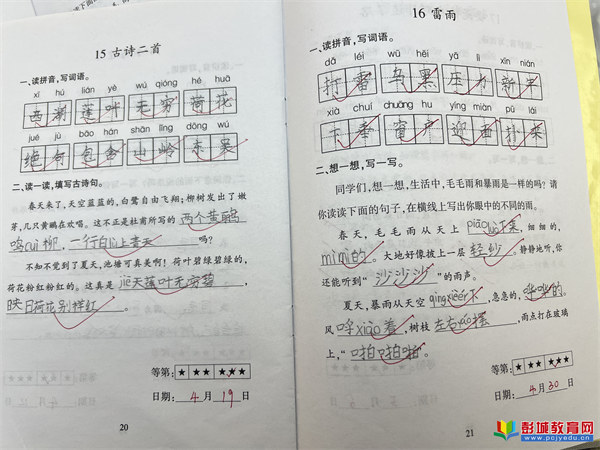 15 古诗二首
一、读拼音,写词语。
xī hú lián yè wú qióng hé huā
西 湖 莲 叶 无 穷 荷 花
jué jù bāo hán shān lǐng dōng wú
绝 句 包 含 山 岭 东 吴
二、读一读,填写古诗句。
春天来了,天空蓝蓝的,白鹭自由飞翔;柳树发出了嫩
芽,几只黄鹂在欢唱。这不正是杜甫所写的 两个黄鹂
鸣cuì柳,一行白山上青天 吗?
不知不觉到了夏天,池塘可真美啊!荷叶碧绿碧绿的,
荷花粉红粉红的。这真是 jiē天莲叶无穷碧
映日荷花别样红 。
等第: ★ ★★ ★★★
日期: 4 月 19 日
20
16 雷雨
一、读拼音,写词语。
dǎ léi wū hēi yā lì xīn nián
打 雷 乌 黑 压 力 新 年
xià chuí chuāng hu yíng miàn pū lái
下 垂 窗 户 迎 面 扑 来
二、想一想,写一写。
同学们,想一想,生活中,毛毛雨和暴雨是一样的吗?请
你读读下面的句子,在横线上写出你眼中的不同的雨。
春天,毛毛雨从天上 piāo luò下来,细细的,
mìmì的。大地好像披上一层 轻纱。静静地听,你
还能听到“ 沙沙沙 ”的雨声。
夏天,暴雨从天空 qīngxièér下,急急的, 哗哗的。
风 呼xiào着,树枝 左右yáo摆 ,雨点打在玻璃
上,“ 啪啪啪 。
等第: ★ ★★ ★★★
日期: 4 月 30 日
21
彭城教育网
www.pcjyedu.cn